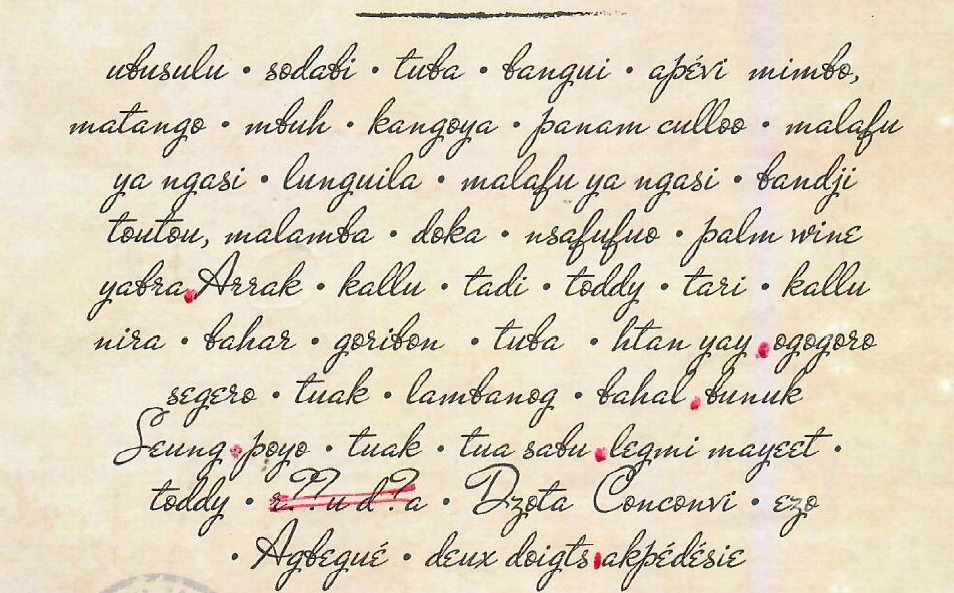 ubusulu • sodabi • tuba • bangui • apévi mimbo,
matango • mbuh • kangoya • panam culloo • malafu
ya ngasi • lunguila • malafu ya ngasi • bandji
toutou, malamba • doka • nsafufuo • palm wine
yabra • Arrak • kallu • tadi • toddy • tari • kallu
nira • bahar • goribon • tuba • htan yay • ogogoro
segero • tuak • lambanog • bahal • bunuk
Seung • poyo • tuak • tua sabu • legmi mayeet •
toddy • r??u d?a • Dzota Conconvi • ezo
• Agbegué • deux doigts • akpédésie